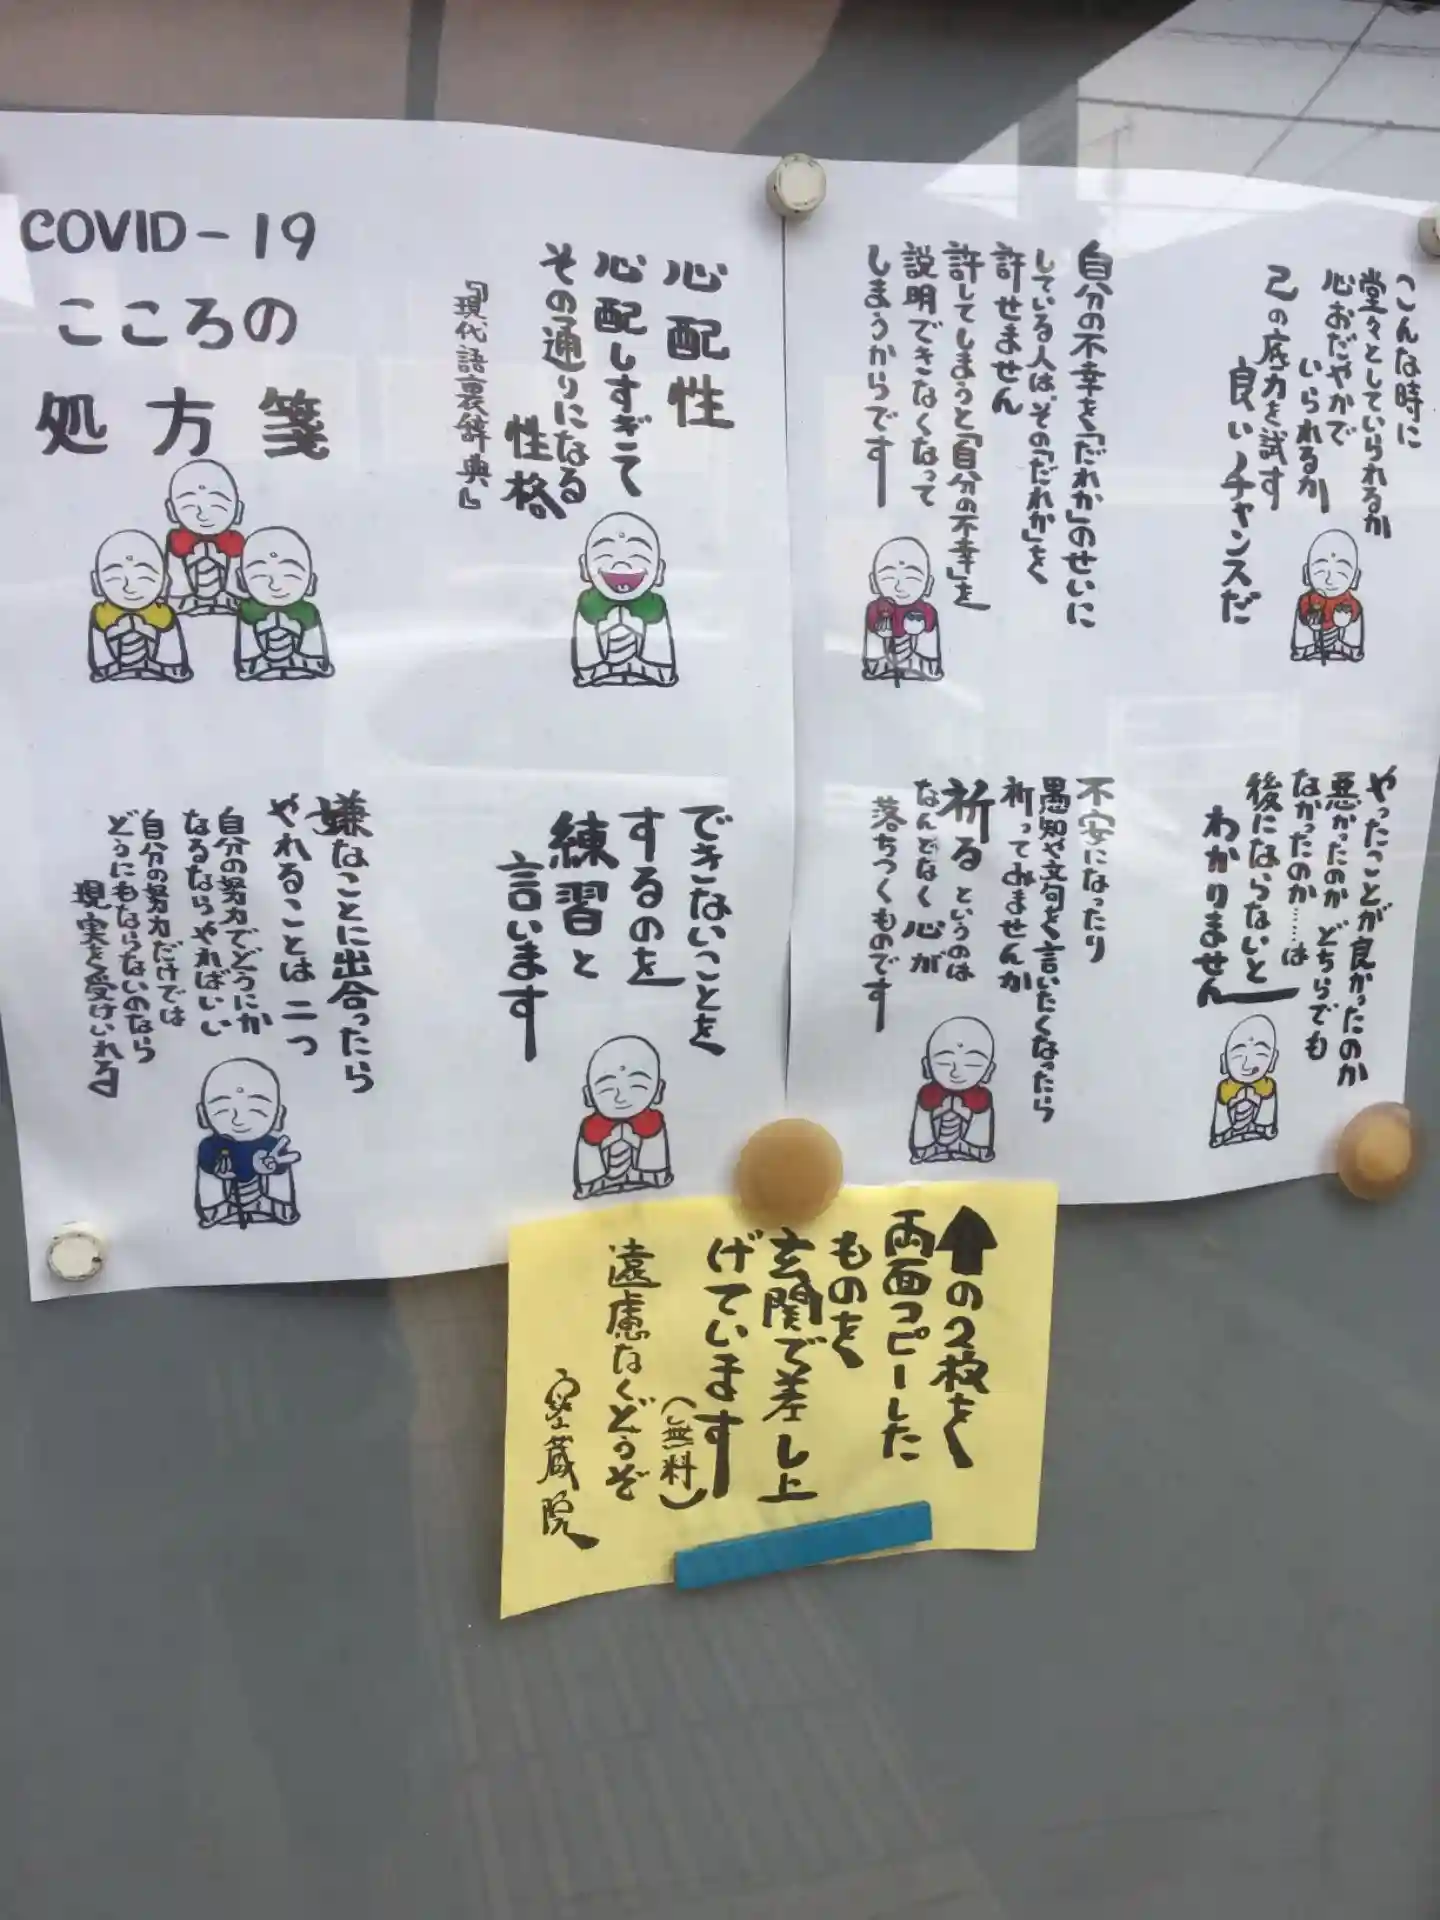 COVID-19
こころの
処方箋
心配性
心配しすぎて
その通りになる
性格
『現代語裏辞典』
嫌なことに出合ったら
やれることは二つ
自分の努力でどうにか
なるならやればいい
自分の努力だけでは
どうにもならないのなら
現実を受けいれる
できないことを
するのを
練習と
言います
こんな時に
堂々としていられるか
心おだやかで
いられるか
己の底力を試す
良いチャンスだ
自分の不幸を「だれか」のせいに
している人は、その「だれか」を
許せません
許してしまうと「自分の不幸」を
説明できなくなって
しまうからです
やったことが良かったのか
悪かったのか どちらでも
なかったのか……は
後にならないと
わかりません
不安になったり
愚知や文句を言いたくなったら
祈ってみませんか
祈るというのは
なんとなく心が
落ちつくものです
↑の2枚を
両面コピーした
ものを
玄関で差し上
げています
(無料)
遠慮なくどうぞ
密蔵院